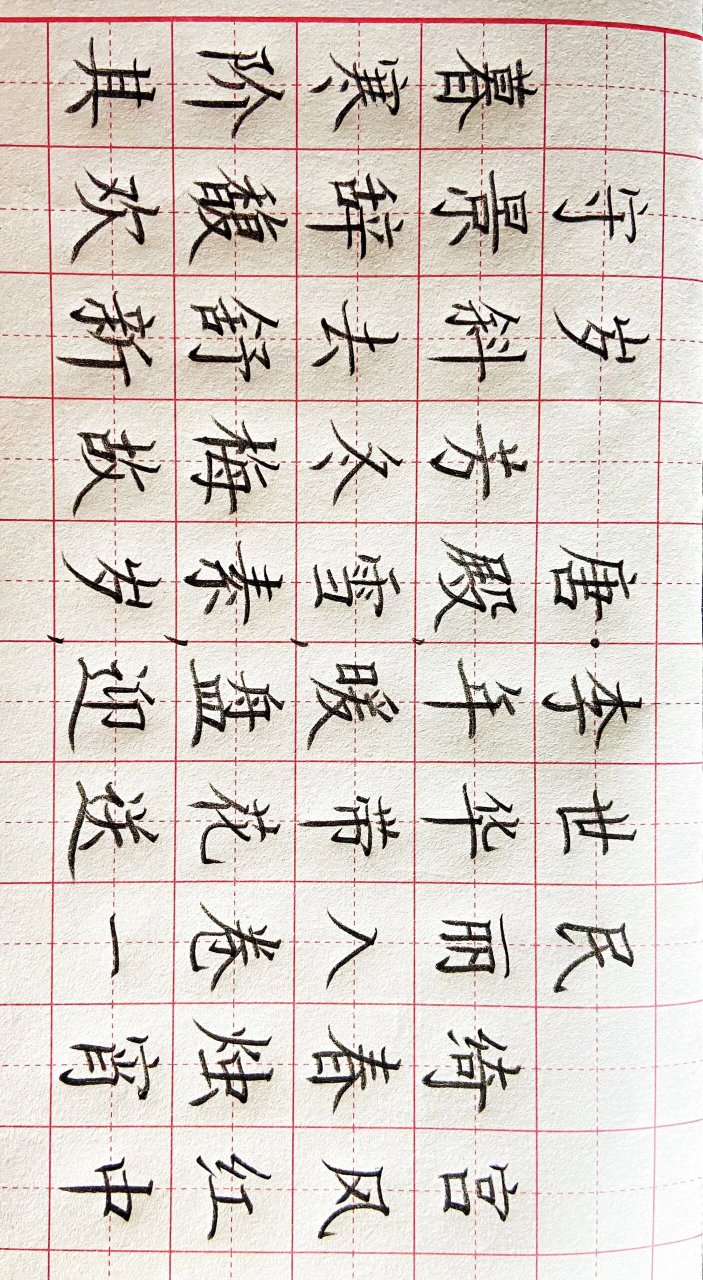 守岁 唐·李世民
暮景斜芳殿,年华丽绮宫
寒辞去冬雪,暖带入春风
阶馥舒梅素,盘花卷烛红
其欢新故岁,迎送一宵中